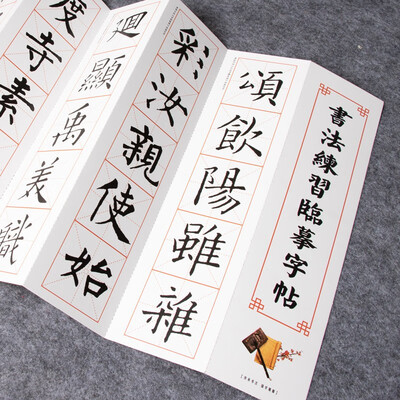 書法練習臨摹字帖
頌飲陽雖雜
彩汝親使始
迴顯禹美職
度寺素